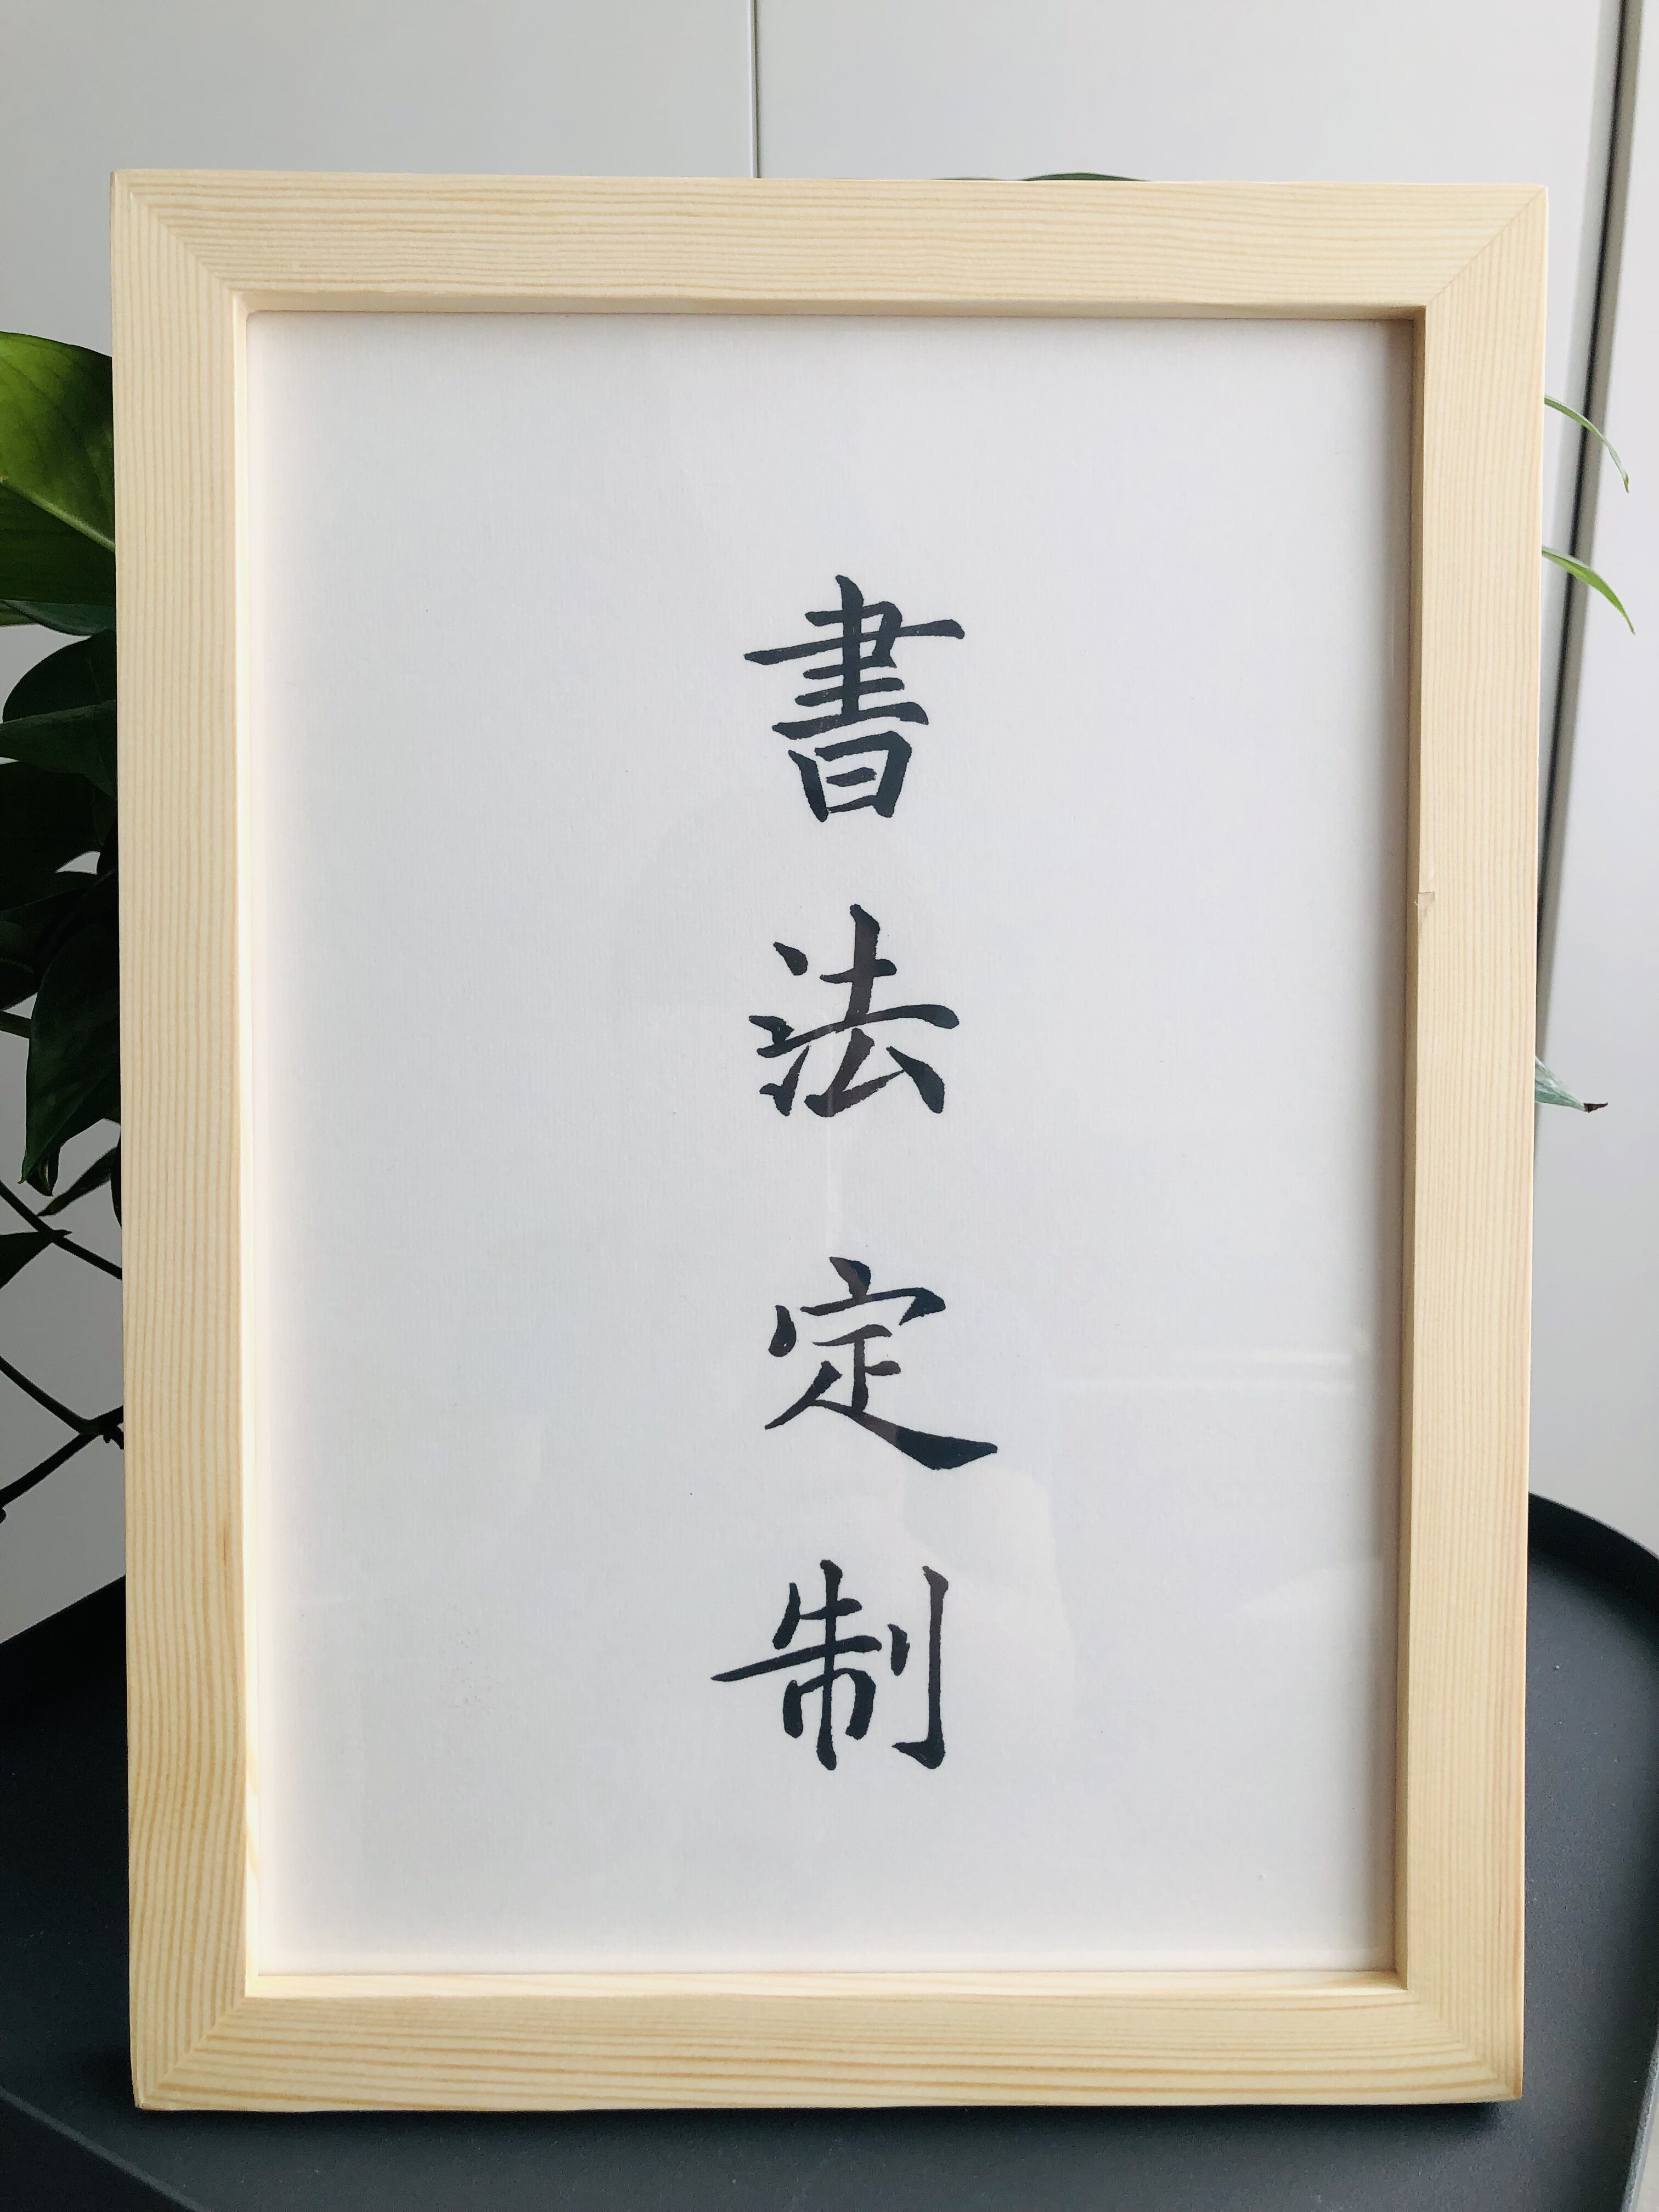 書法定制